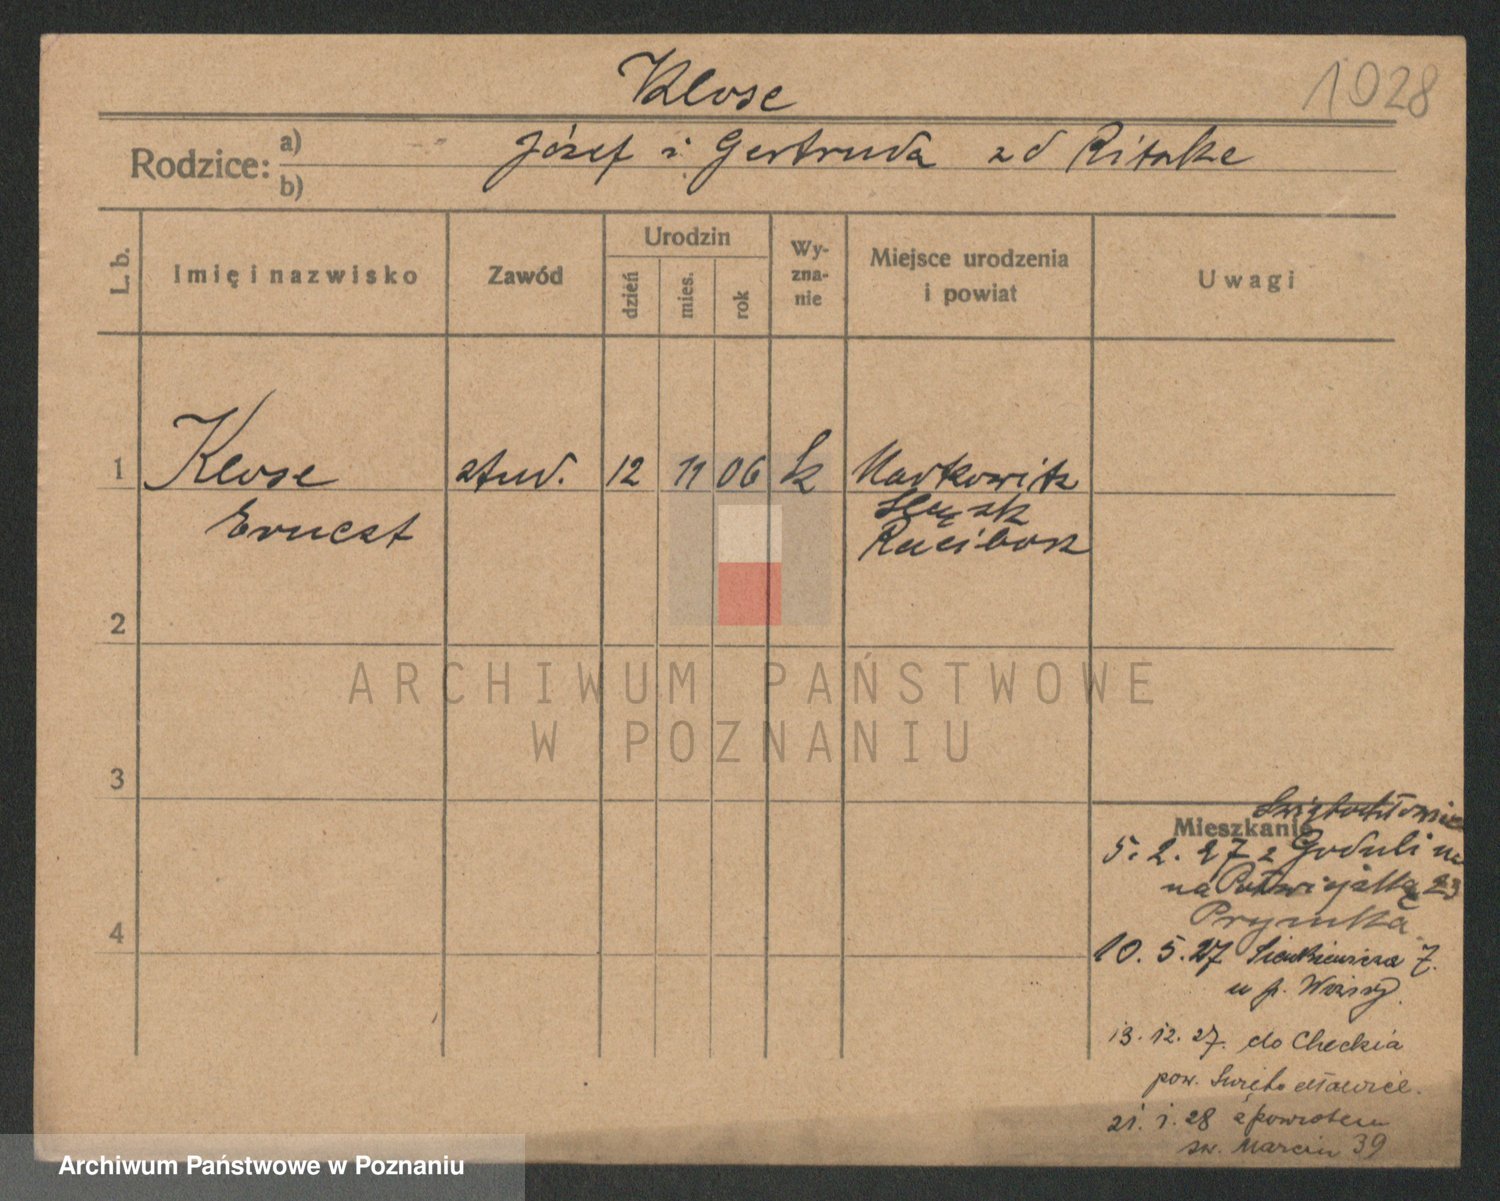 Klose
1928
Rodzice: a) Józef i Gertruda zd
b)
L. b.
Imię i nazwisko
Zawód
Urodzin
dzień
mies.
rok
Wy-
zna-
nie
Miejsce urodzenia
i powiat
Uwagi
1 Klose stud. 12 11 06 k Markowitz
Ernest
Śląsk
Racibórz
2
ARCHIWUM PAŃSTWOWE
W POZNANIU
3
4
Mieszkanie
Świętochłowice
5. 2. 27 z Goduli
na 23
10. 5. 27 Sienkiewicza 7.
u p.
13. 12. 27. do
pow. Świętochłowice.
21. 1. 28 z powrotem
św. Marcin 39
Archiwum Państwowe w Poznaniu